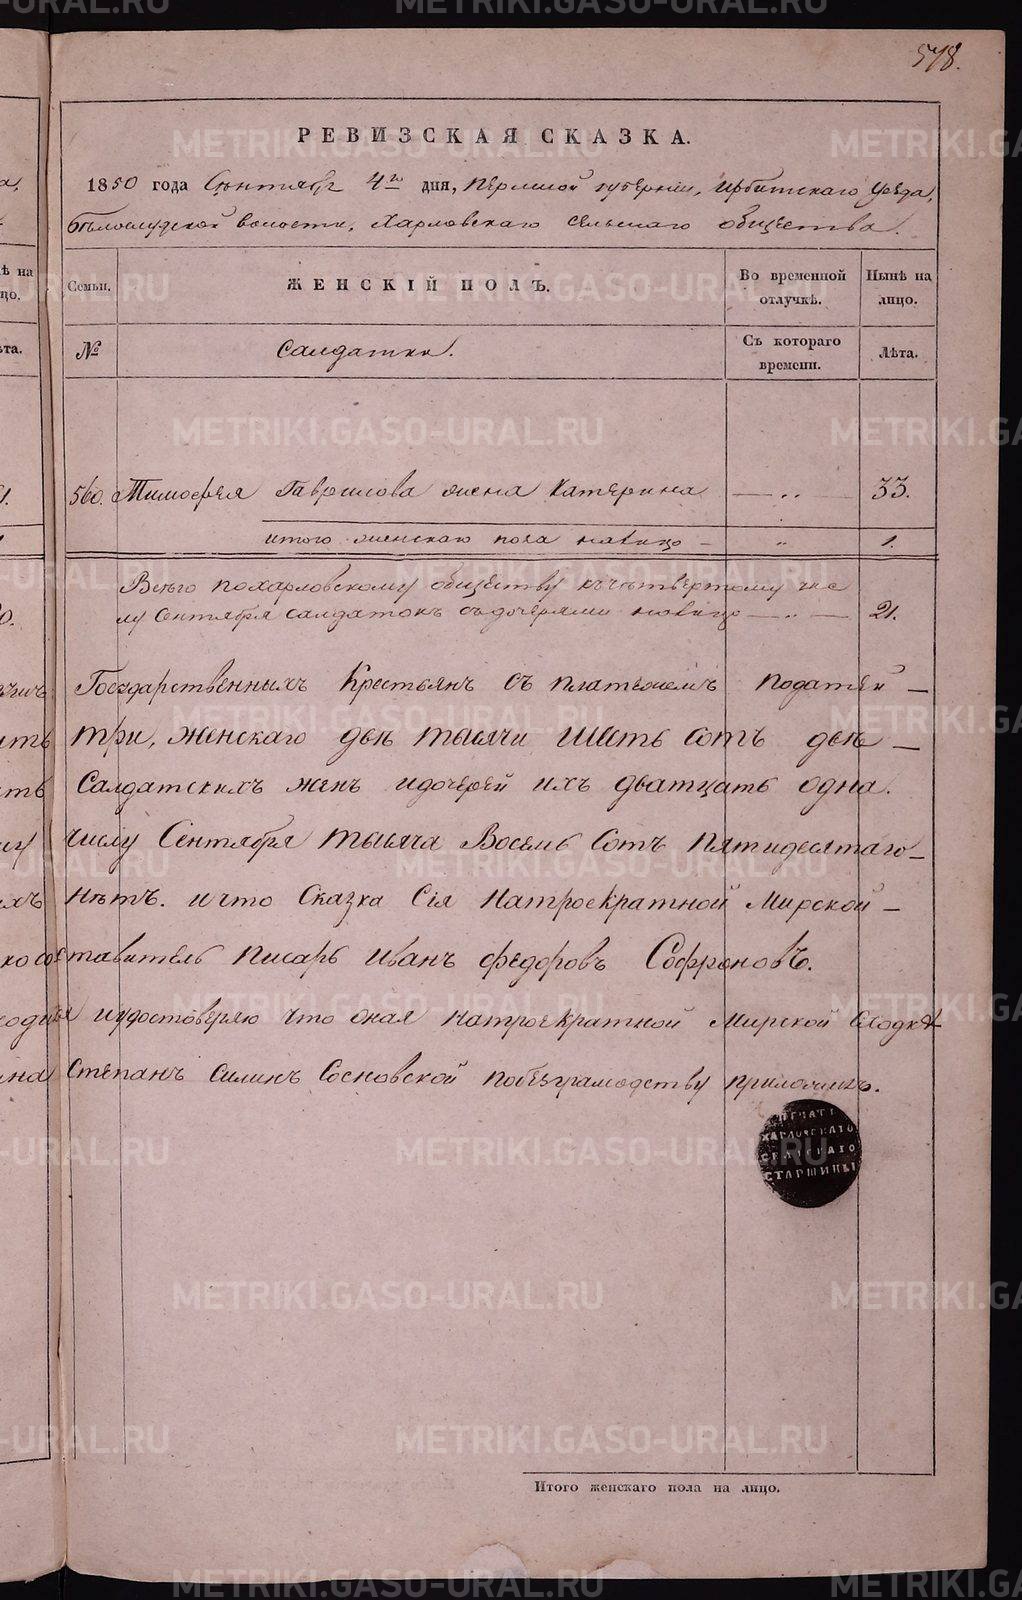 578.
РЕВИЗСКАЯ СКАЗКА.
1850 года Сентября 4го дня, Пермской губернии, Ирбитскаго уезда,
Белослудской волости, Харловскаго сельскаго общества.
Семьи.
ЖЕНСКІЙ ПОЛЪ.
Во временной отлучкѣ.
Нынѣ на лицо.
№
Салдатки.
Съ котораго времени.
Лѣта.
560. Тимофея Гаврилова жена Катерина — „ — 33.
итого женскаго пола налицо — „ 1.
Всего похарловскому обществу къчетвертому чис
лу Сентября салдатокъ съдочерями налицо — „ — 21.
Государственныхъ Крестьянъ съ платежемъ податей —
три, женскаго две тысячи шесть сотъ две —
Салдатскихъ женъ идочерей ихъ дватцать одна.
числу Сентября тысяча Восемь Сотъ пятидесятаго —
нетъ. ичто Сказка Сія натроекратной Мирской —
тавитель писарь Иванъ Федоровъ Софроновъ.
иудостоверяю что оная натроекратной Мирской Сходке
Степанъ Силинъ Сосновской побезграмодству приложилъ.
ПЕЧАТЬ
ХАРЛОВСКАГО
СЕЛЬСКАГО
СТАРШИНЫ
Итого женскаго пола на лицо.
METRIKI.GASO-URAL.RU